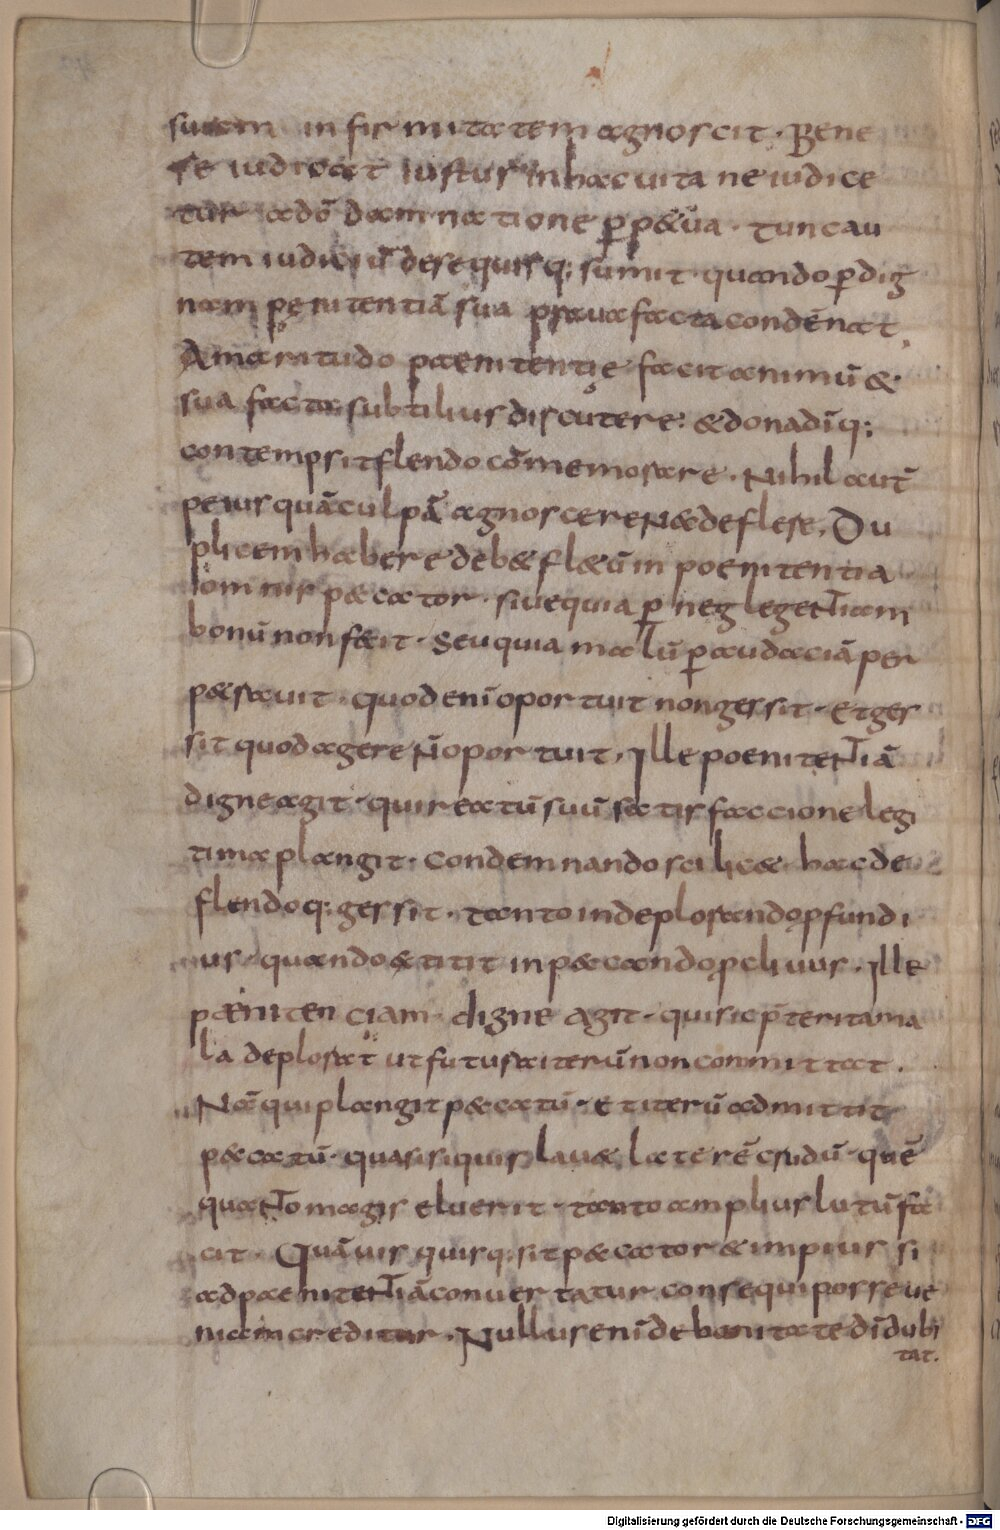 suam infirmitatem agnoscit. Bene
se iudicat iustus in hac uita ne iudice
tur ado dānatione ꝑp&ua. tunc au
tem iudiciū de se quisq; sumit quando ꝑ dig
nam penitentiā sua praua facta condēnat.
Amaritudo paenitentię facit animū &
sua facta subtilius discutere. & dona dī q;
contempsit flendo cōmemorare. Nihil aut̄
peius quā culpā agnoscere nec deflere. Du
plicem habere deb& fl&ū in poenitentia
omnis peccator. siue quia ꝑ neglegentiam
bonū non fecit. seu quia malū ꝑ audaciā per
petrauit. quod enī oportuit non gessit. Et ges
sit quod agere n̄ oportuit. Ille poenitentiā
digne agit. qui reatū suū satisfaccione legi
tima plangit. condemnando scilic& hac de
flendo q; gessit. tanto in deplorando ꝓfundi
us. quando &titit in peccando ꝓcliuus. Ille
paenitenciam digne agit. qui sic p̄terita ma
la deplorat ut futura iterū non committat.
Nā qui plangit peccatū. Et iterū admittit
peccatū. quasi si quis lau& laterē crudū. quē
quanto magis eluerit. tanto amplius lutū fa
cit. Quāuis quisq. sit peccator & impius si
ad paenitentiā conuertatur consequi posse ue
niam creditur. Nullus enī de bonitate dī dubi
tat.
Digitalisierung gefördert durch die Deutsche Forschungsgemeinschaft - DFG